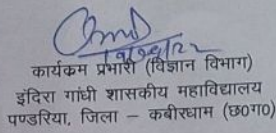 कार्यकम प्रभारी (विज्ञान विभाग)
इंदिरा गांधी शासकीय महाविद्यालय
पण्डरिया, जिला – कबीरधाम (छ०ग०)